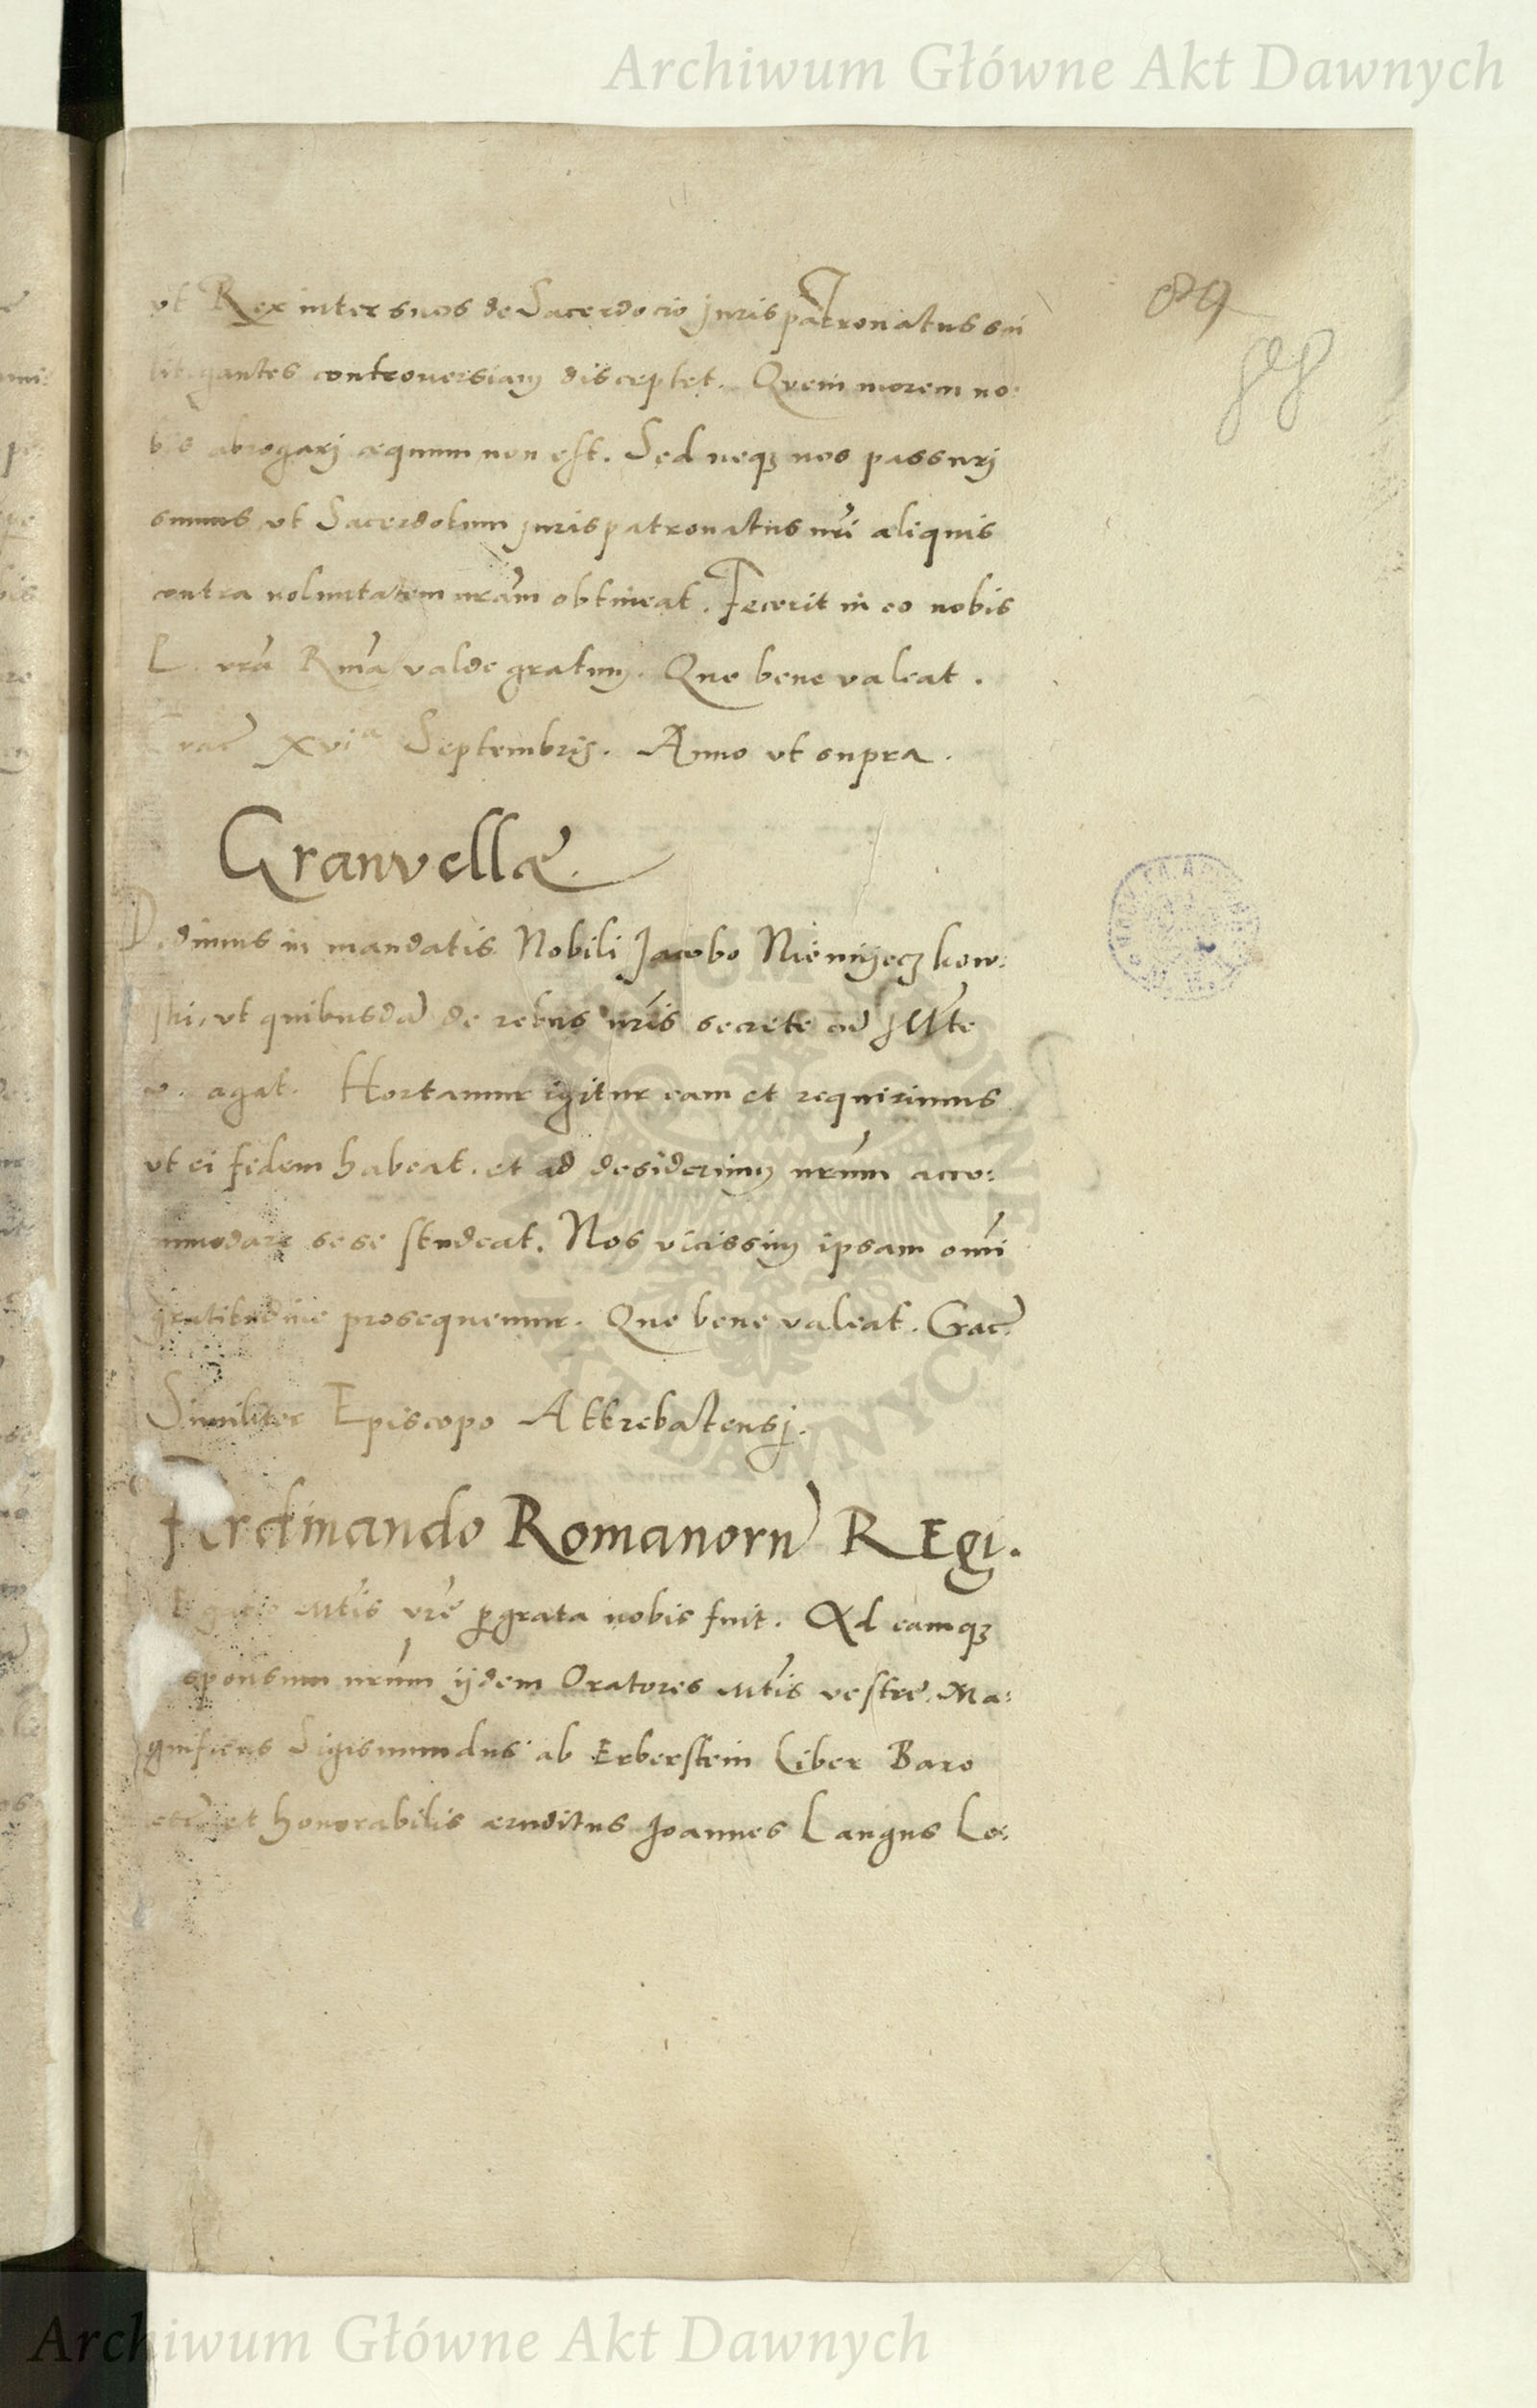 Archiwum Główne Akt Dawnych
89
88
ut Rex inter suos de Sacerdocio jurispatronatus sui
litigantes controuersiam disceptet. Quem morem no:
bis abrogarj æquum non est. Sed neqꝫ nos passurj
sumus ut Sacerdotum jurispatronatus nr̃i aliquis
contra voluntatem nrãm obtineat. Fecerit in eo nobis
P. vrã Rmã valde gratum. Que bene valeat.
Crac̃ xviª Septembris. Anno ut supra.
Granvellæ.
Dedimus in mandatis Nobili Jacobo Niemyeczkow:
ski, ut quibusdã de rebus nrĩs secrete cũ Mte
v. agat. Hortamur igitur eam et requirimus
ut ei fidem habeat. et ad desiderium nrũm acco:
mmodare sese studeat. Nos vicissim ipsam omni
gratitudine prosequemur. Que bene valeat. Crac̃
Similiter Episcopo Attrebatensj.
Ferdinando Romanorũ REgi.
Mtĩs vrẽ ꝑgrata nobis fuit. Ad eamqꝫ
sponsum nrũm ijdem Oratores Mtĩs vestre, Ma:
gnificus Sigismundus ab Erberstein Liber Baro
etc̃ et honorabilis æruditus Joannes Langus Le:
Archiwum Główne Akt Dawnych